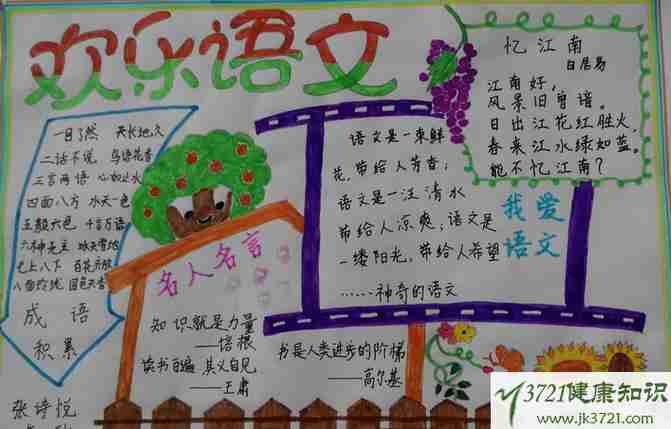 欢乐语文
忆江南
白居易
江南好，
风景旧曾谙。
日出江花红胜火，
春来江水绿如蓝。
能不忆江南？
一目了然 天长地久
二话不说 鸟语花香
三言两语 心如止水
四面八方 水天一色
五颜六色 千言万语
六神无主 冰天雪地
七上八下 百花齐放
八面玲珑 国色天香
成语
积累
名人名言
知识就是力量
——培根
读书百遍 其义自见
——王肃
书是人类进步的阶梯
——高尔基
语文是一束鲜
花，带给人芳香；
语文是一汪清水
带给人凉爽；语文是
一缕阳光，带给人希望
……神奇的语文
我爱
语文
张诗悦
3721健康知识
www.jk3721.com